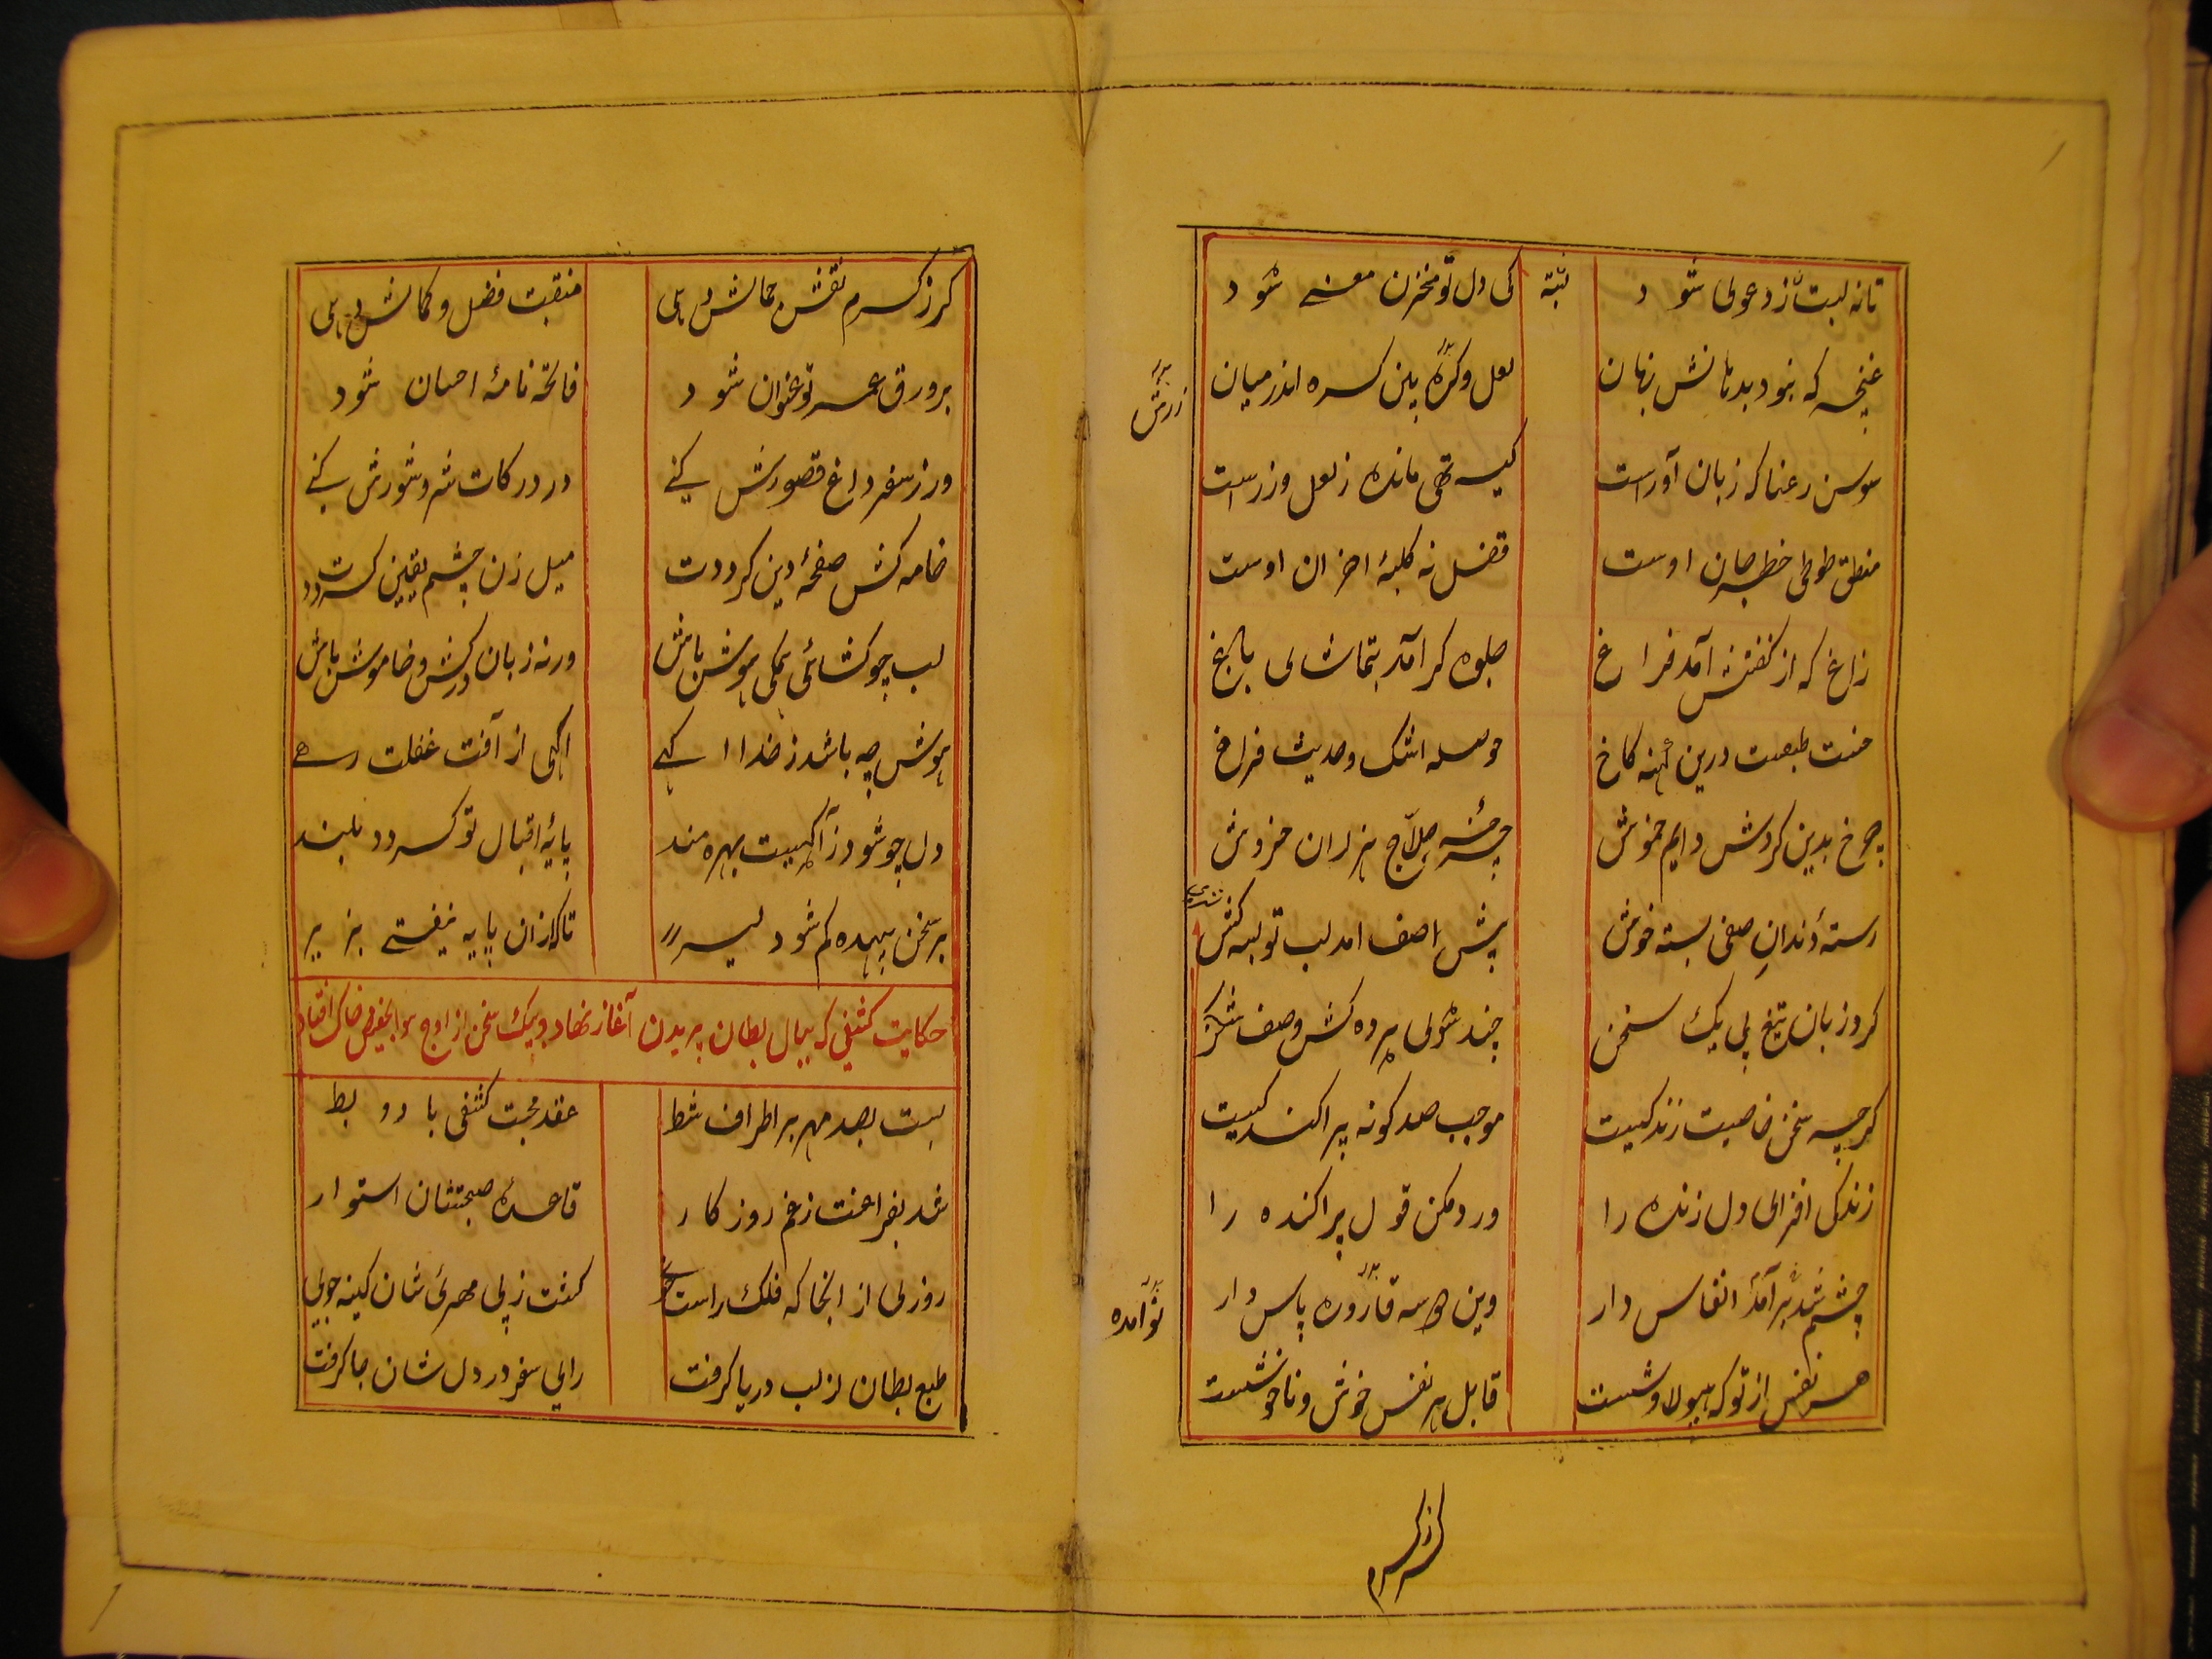 تا نه لبت از دعوی شود بسته کی دل تو مخزن معنی شود
غنچه که نبود بدهانش زبان لعل و گره بین کره اندر میان
زرش
سوسن رعنا که زبان آورست کیسه تهی مانده ز لعل و زرست
منطق طوطی خطر جان اوست قفل نه کلبهٔ احزان اوست
زاغ که از گفتنش آمد فراغ جلوه گر آمد بتماشای باغ
خست طبعست درین کهنه کاخ حوصله تنگ و حدیث فراخ
چرخ بدین گردش دایم خموش چرخهٔ حلّاج هزاران خروش
رستهٔ دندان صفی بسته خوش پیش صف آمد لب تو لبه کش
کرد زبان تیغ پی یک سخن چند شوی پرده کش و صف شکن
گرچه سخن خاصیت زندگیست موجب صد گونه پراکندگیست
زندگی افزای دل زنده را ورد مکن قول پراکنده را
چشم شد بر آمد انفاس دار وین قاروره پاس دار
نو آمده
هر نفس از تو که هیولاوشست قابل هر نفس خوش و ناخوشست
گر ز کرم
گر ز کرم نقش جمالش دهی منقبت فضل و کمالش دهی
بر ورق عمر تو عنوان شود فاتحه نامهٔ احسان شود
ور ز سفه داغ قصورش کنی در درکات شر و شورش کنی
خامه کش صفحهٔ دین گرددت میل زن چشم یقین گرددت
لب چو گشائی بهوش باش ورنه زبان درکش و خاموش باش
هوش چه باشد ز خدا آگهی آگهی از آفت غفلت رهی
دل چو شود ز آگهیت بهره مند پایهٔ اقبال تو گردد بلند
بر سخن بیهده کم شو دلیر تا که ازان پایه نیفتی بزیر
حکایت کشفی که ببال بطان پریدن آغاز نهاد و بیک سخن از اوج هوا بحضیض خاک افتاد
بست بصد مهر بر اطراف شط عقد محبت کشفی با دو بط
شد بفراغت ز غم روزگار قاعدهٔ صحبتشان استوار
روزی از آنجا که فلک راست گشت ز بی مهری شان کینه جوی
طبع بطان از لب دریا گرفت رای سفر در دل شان جا گرفت